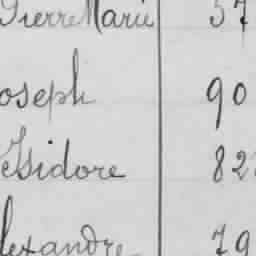 Pierre Marie 57
oseph 90
Isidore 82
lexandre 79